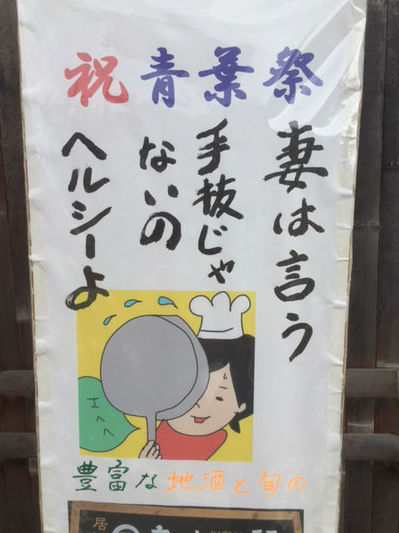 祝青葉祭
妻は言う
手抜じゃ
ないの
ヘルシーよ
エヘヘ
豊富な地酒と旬の
居